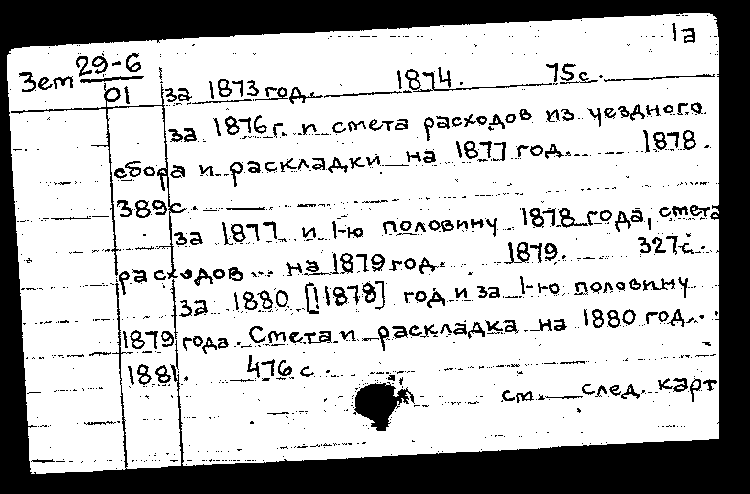 1а
Зем 29-6
01 за 1873 год. 1874. 75с.
за 1876 г. и смета расходов из уездного
сбора и раскладки на 1877 год. 1878.
389с.
за 1877 и 1-ю половину 1878 года, смета
расходов... на 1879 год. 1879. 327с.
за 1880 [!1878] год и за 1-ю половину
1879 года. Смета и раскладка на 1880 год...
1881. 476 с.
см. след. карт